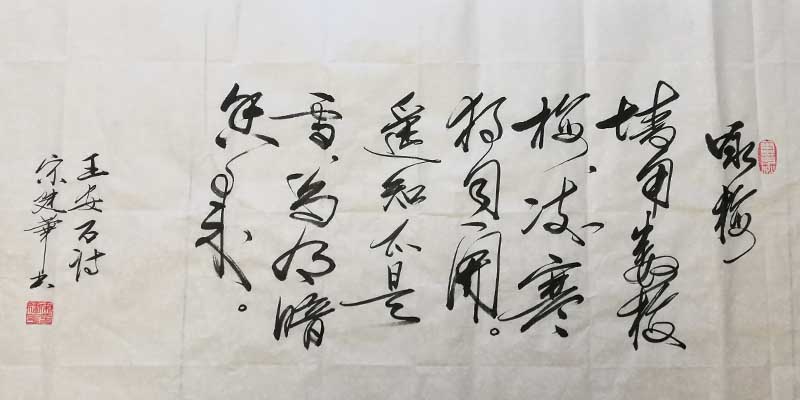 咏梅
墙角数枝
梅，凌寒
独自開。
遥知不是
雪，为有暗
香来。
王安石诗
宋建華书